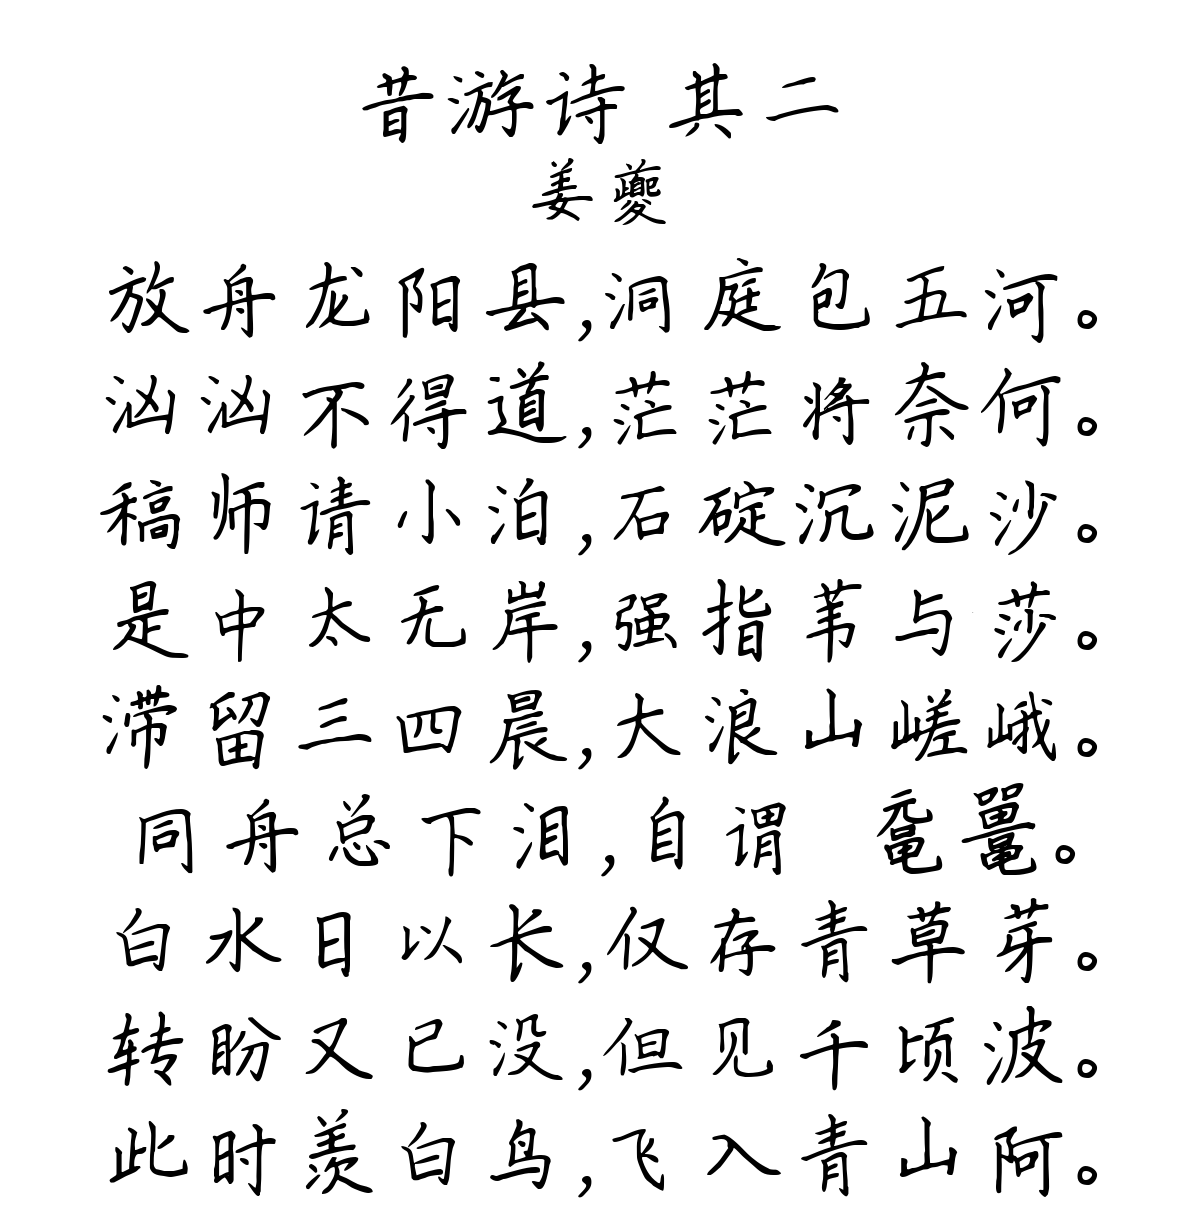 昔游诗 其二
姜夔
放舟龙阳县,洞庭包五河。
汹汹不得道,茫茫将奈何。
稿师请小泊,石碇沉泥沙。
是中太无岸,强指苇与莎。
滞留三四晨,大浪山嵯峨。
同舟总下泪,自谓 鼋鼍。
白水日以长,仅存青草芽。
转盼又已没,但见千顷波。
此时羡白鸟,飞入青山阿。